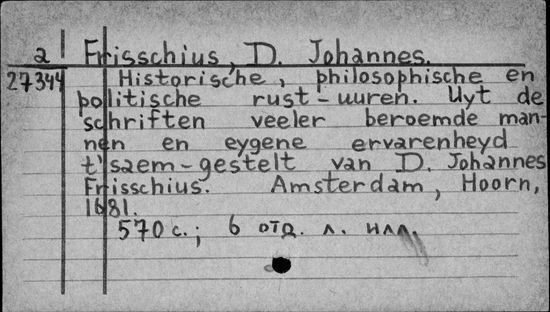 a Frisschius, D. Johannes.
27344 Historische, philosophische en
politische rust-uuren. Uyt de
schriften veeler beroemde man-
nen en eygene ervarenheyd
t'saem-gestelt van D. Johannes
Frisschius. Amsterdam, Hoorn,
1681.
570 с.; 6 отд. л. илл.